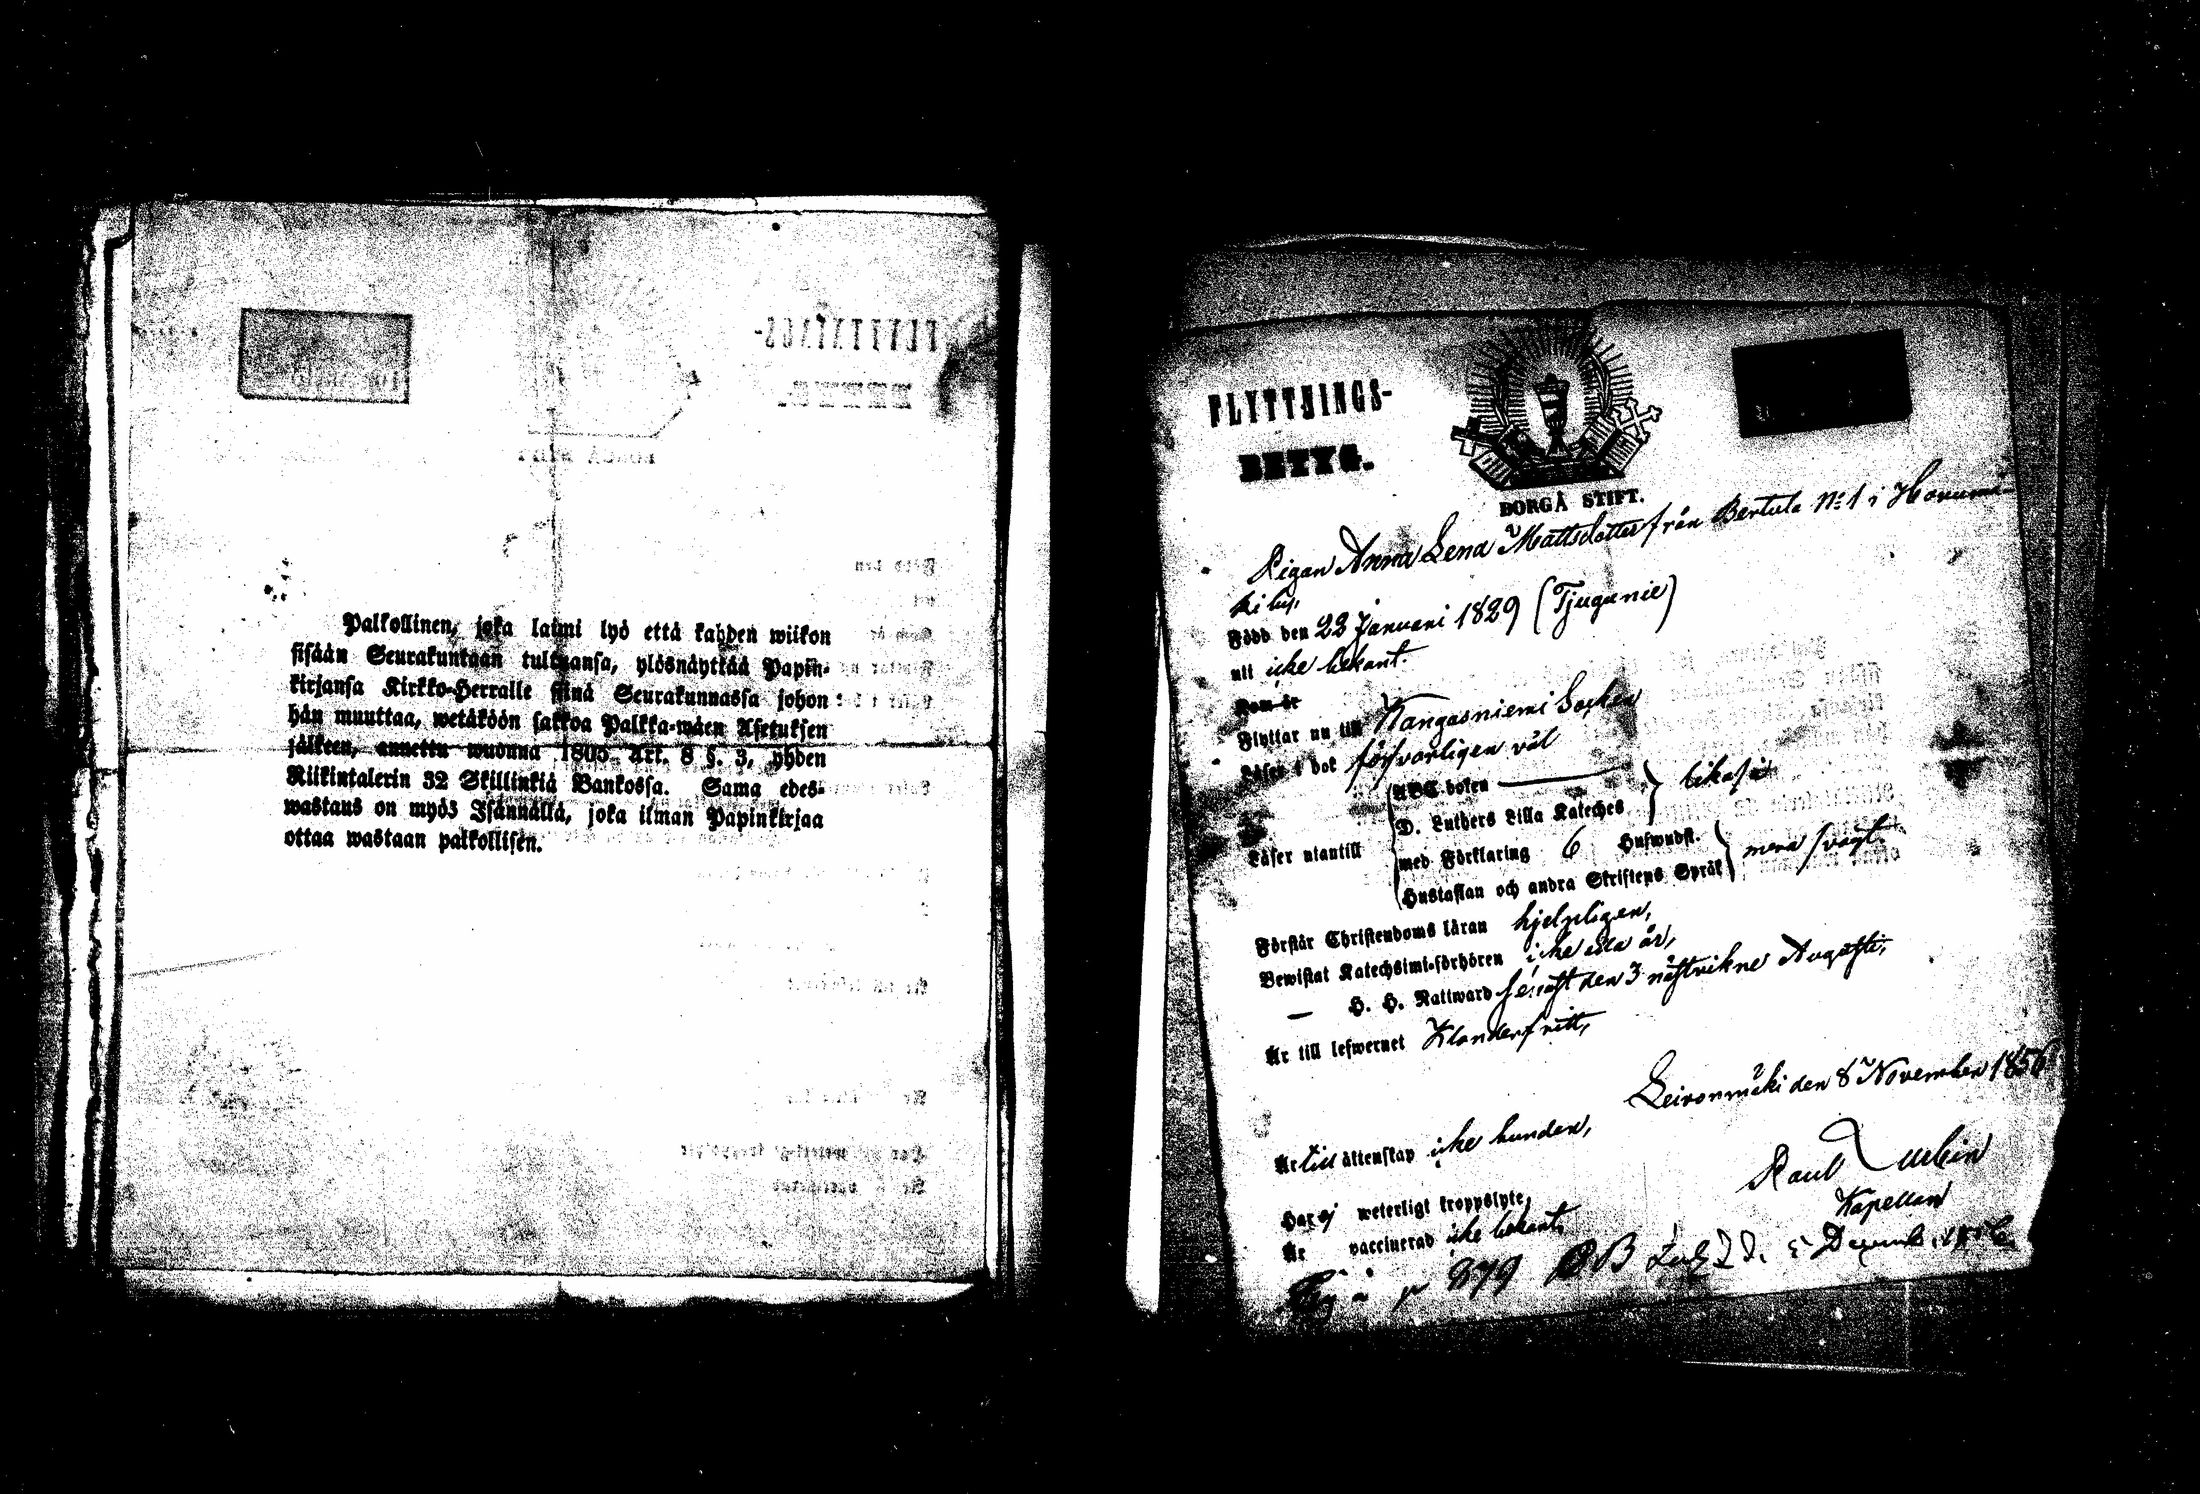 Palkollinen, joka laimi lyö että kahden wiikon
sisään Seurakuntaan tultuansa, ylösnäyttää Papin-
kirjansa Kirkko-Herralle siinä Seurakunnassa johon
hän muuttaa, wetäköön sakkoa Palkka-wäen Asetuksen
jälkeen, annettu wuonna 1805 Art. 8 §. 3, yhden
Riikintalerin 32 Skillinkiä Bankossa. Sama edes-
wastaus on myös Isännällä, joka ilman Papinkirjaa
ottaa wastaan palkollisen.
FLYTTNINGS-
BETYG.
BORGÅ STIFT.
Pigan Anna Lena Mattsdotter från Bertula No 1 i Havumä-
ki by,
Född den 22 Januari 1829 (Tjugunie)
uti icke bekant.
Kom år
Flyttar nu till Kangasniemi Socken
Läser i bok försvarligen väl
Läser utantill
ABC-boken
D. Luthers Lilla Kateches
med Förklaring 6 Huswudst.
Hustaflan och andra Skriftens Språk
mera svagt.
Förstår Christendoms läran hjelpligen,
Bewistat Katechismi-förhören icke alla år,
— H. H. Nattward senast den 3 nästvikne Augusti,
Är till lefwernet Klanderfritt,
Leivonmäki den 8 November 1856
Är till äktenskap icke bunden,
Paul Lurbin
Kapellan
Har ej weterligt kroppslyte,
Är vaccinerad icke bekant.
879